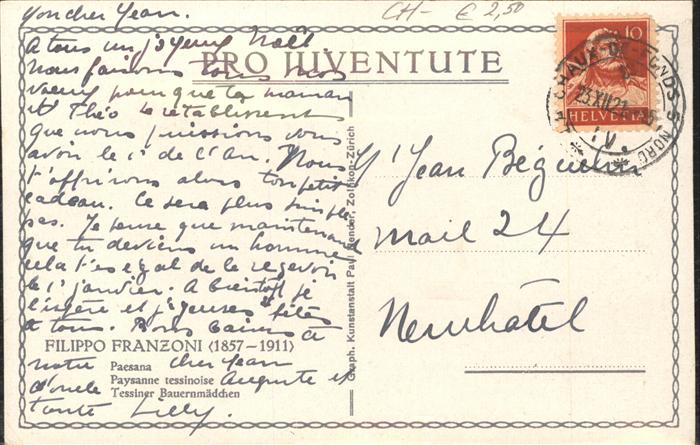 Mon cher Jean.
CH- € 2,50
A tous un joyeux Noël
PRO JUVENTUTE
Nous faisons tous nos
voeux pour que ta maman
et Théo se rétablissent
que nous puissions vous
avoir le 1' de l'An. Nous
t'offrirons alors ton petit
cadeau. Ce sera plus simple
pas. Je pense que maintenant
que tu deviens un homme
cela t'es egal de le reçevoir
le 1' janvier. A bientôt je
l'espère et joyeuses fêtes
à tous. Bons baisers à
FILIPPO FRANZONI (1857–1911)
notre cher Jean
Paesana
Paysanne tessinoise
Tessiner Bauernmädchen
d'oncle Auguste et
tante Lilly.
Graph. Kunstanstalt Paul Bender, Zollikon-Zürich
10
HELVETIA
LA CHAUX-DE-FONDS
NORD
23.XII.21
IV.
Jean Béguelin
Mail 24
Neuchâtel